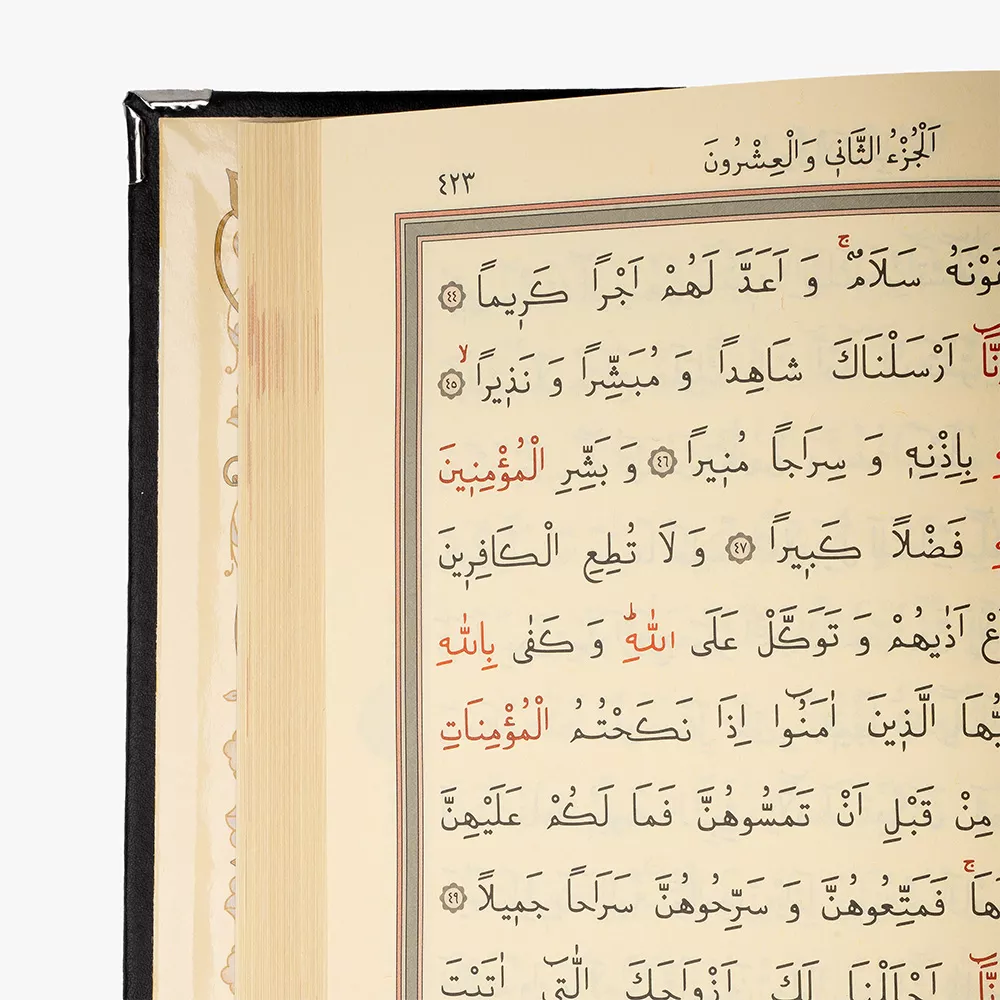 اَلْجُزْءُ الثَّانٖي وَالْعِشْرُونَ
٤٢٣
سَلَامٌۚ وَ اَعَدَّ لَهُمْ اَجْراً كَرٖيماً ٤٤
اَرْسَلْنَاكَ شَاهِداً وَ مُبَشِّراً وَ نَذٖيراًۙ ٤٥
بِاِذْنِهٖ وَ سِرَاجاً مُنٖيراً ٤٦ وَ بَشِّرِ الْمُؤْمِنٖينَ
فَضْلاً كَبٖيراً ٤٧ وَ لَا تُطِعِ الْكَافِرٖينَ
اَذٰيهُمْ وَ تَوَكَّلْ عَلَى اللّٰهِؕ وَ كَفٰى بِاللّٰهِ
الَّذٖينَ اٰمَنُٓوا اِذَا نَكَحْتُمُ الْمُؤْمِنَاتِ
مِنْ قَبْلِ اَنْ تَمَسُّوهُنَّ فَمَا لَكُمْ عَلَيْهِنَّ
فَمَتِّعُوهُنَّ وَ سَرِّحُوهُنَّ سَرَاحاً جَمٖيلاً ٤٩
اَحْلَلْنَا لَكَ اَزْوَاجَكَ الّٰتٖٓي اٰتَيْتَ